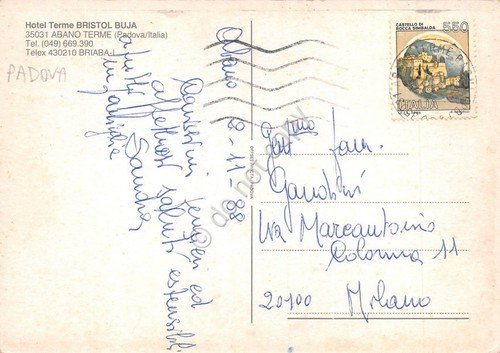 Hotel Terme BRISTOL BUJA
35031 ABANO TERME (Padova/Italia)
Tel. (049) 669.390
Telex 430210 BRIABA-I
PADOVA
CASTELLO DI
ROCCA SINIBALDA
550
ITALIA
Abano 8-11-88
Carissimi pensieri ed
affettuosi saluti estensibili
a tutta
famiglia
Sandra
Gent.ma fam.
Via Marcantonio
Colonna 11
20100 Milano